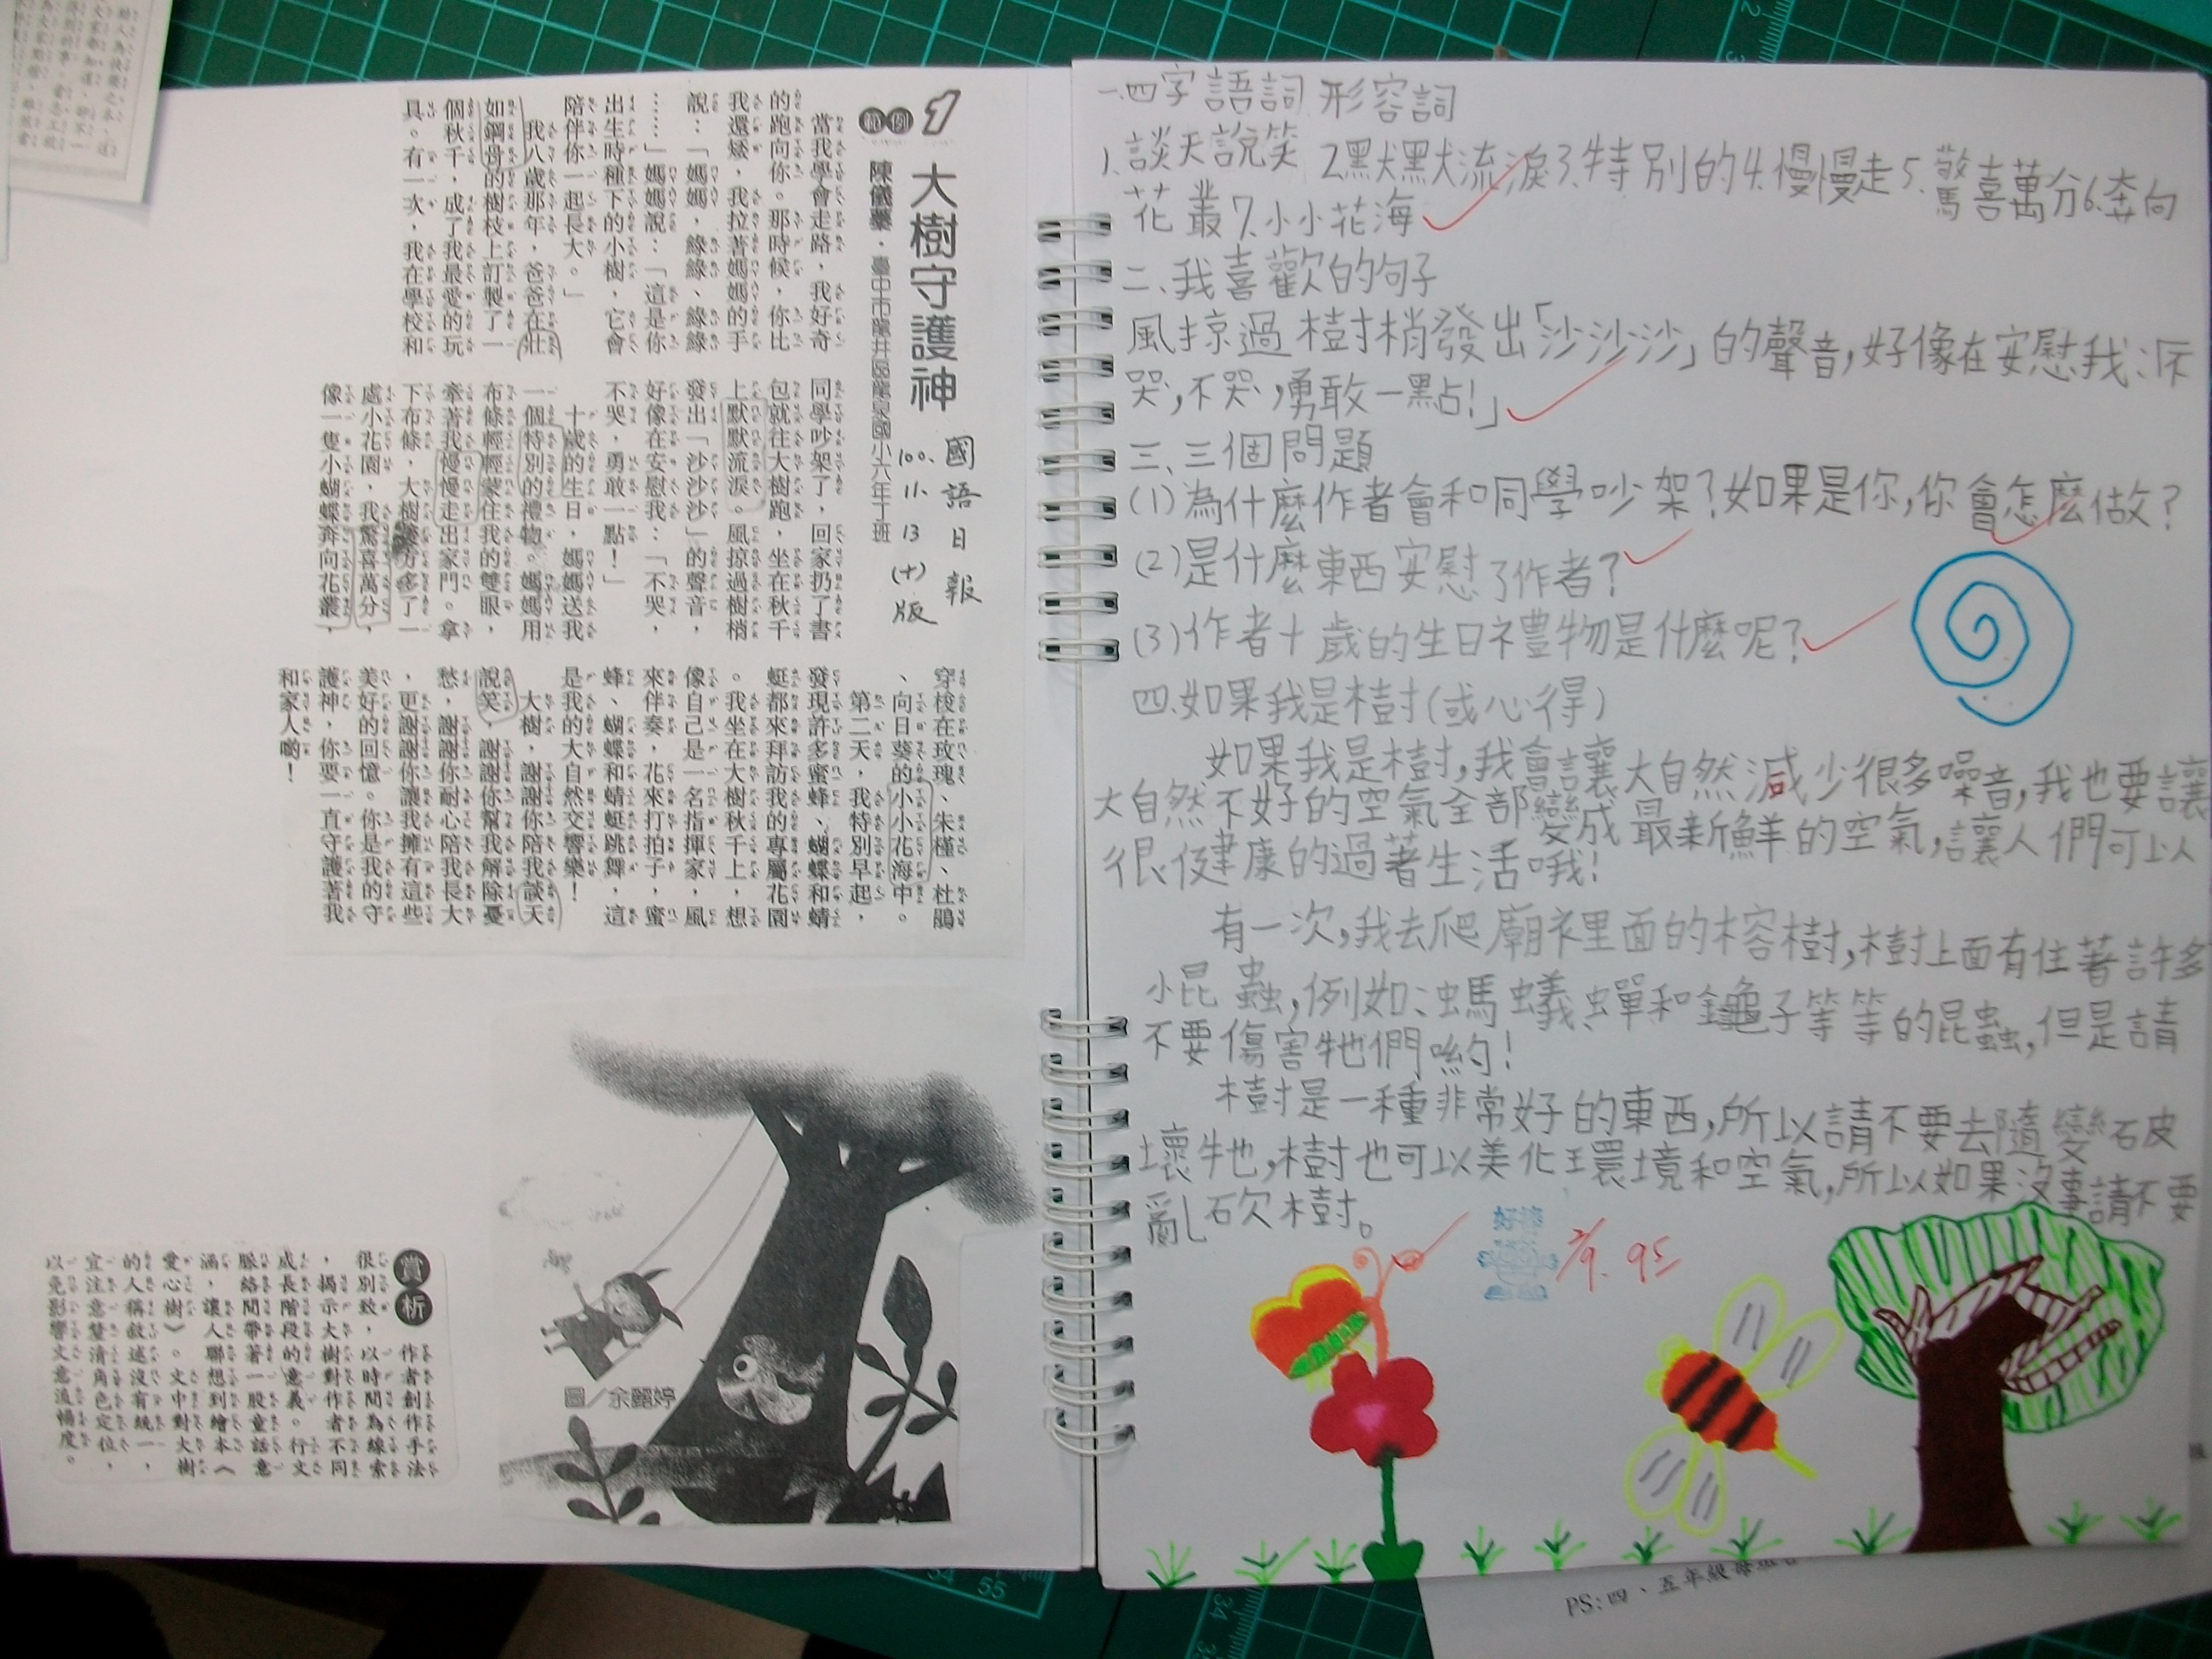 1
範例
大樹守護神
陳儀蓁・臺中市龍井區龍泉國小六年丁班
國語日報
100.11.13(十)版
當我學會走路，我好奇
的跑向你。那時候，你比
我還矮，我拉著媽媽的手
說：「媽媽，綠綠、綠綠
……」媽媽說：「這是你
出生時種下的小樹，它會
陪伴你一起長大。」
我八歲那年，爸爸在壯
如鋼骨的樹枝上訂製了一
個秋千，成了我最愛的玩
具。有一次，我在學校和
同學吵架了，回家扔了書
包就往大樹跑，坐在秋千
上默默流淚。風掠過樹梢
發出「沙沙沙」的聲音，
好像在安慰我：「不哭，
不哭，勇敢一點！」
十歲的生日，媽媽送我
一個特別的禮物。媽媽用
布條輕輕蒙住我的雙眼，
牽著我慢慢走出家門。拿
下布條，大樹後方多了一
處小花園，我驚喜萬分，
像一隻小蝴蝶奔向花叢，
穿梭在玫瑰、朱槿、杜鵑
、向日葵的小小花海中。
第二天，我特別早起，
發現許多蜜蜂、蝴蝶和蜻
蜓都來拜訪我的專屬花園
。我坐在大樹秋千上，想
像自己是一名指揮家，風
來伴奏，花來打拍子，蜜
蜂、蝴蝶和蜻蜓跳舞，這
是我的大自然交響樂！
大樹，謝謝你陪我談天
說笑，謝謝你幫我解除憂
愁，謝謝你耐心陪我長大
，更謝謝你讓我擁有這些
美好的回憶。你是我的守
護神，你要一直守護著我
和家人喲！
圖／余麗婷
賞析
作者創作手法
很別致，以時間為線索
，揭示大樹對作者不同
成長階段的意義。行文
脈絡間帶著一股童話意
涵，讓人聯想到繪本《
愛心樹》。文中對大樹
的人稱敘述沒有統一，
宜注意釐清角色定位，
以免影響文意流暢度。
一.四字語詞 形容詞
1.談天說笑 2.默默流淚3.特別的4.慢慢走5.驚喜萬分6.奔向
花叢7.小小花海
二、我喜歡的句子
風掠過樹梢發出「沙沙沙」的聲音,好像在安慰我:「不
哭,不哭,勇敢一點!」
三、三個問題
(1)為什麼作者會和同學吵架?如果是你,你會怎麼做?
(2)是什麼東西安慰了作者?
(3)作者十歲的生日禮物是什麼呢?
四.如果我是樹(或心得)
如果我是樹,我會讓大自然減少很多噪音,我也要讓
大自然不好的空氣全部變成最新鮮的空氣,讓人們可以
很健康的過著生活哦!
有一次,我去爬廟裡面的榕樹,樹上面有住著許多
小昆蟲,例如:螞蟻、蟬和金龜子等等的昆蟲,但是請
不要傷害牠們喲!
樹是一種非常好的東西,所以請不要去隨變破
壞牠,樹也可以美化環境和空氣,所以如果沒事請不要
亂砍樹。
好棒
2/9. 95
PS:四、五年級每
54
55
34